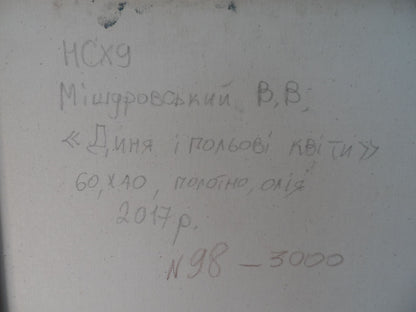 НСХУ
Мішуровський В,В;
«Диня і польові квіти»
60,ХАО, полотно, олія
2017 р.
N98 – 3000